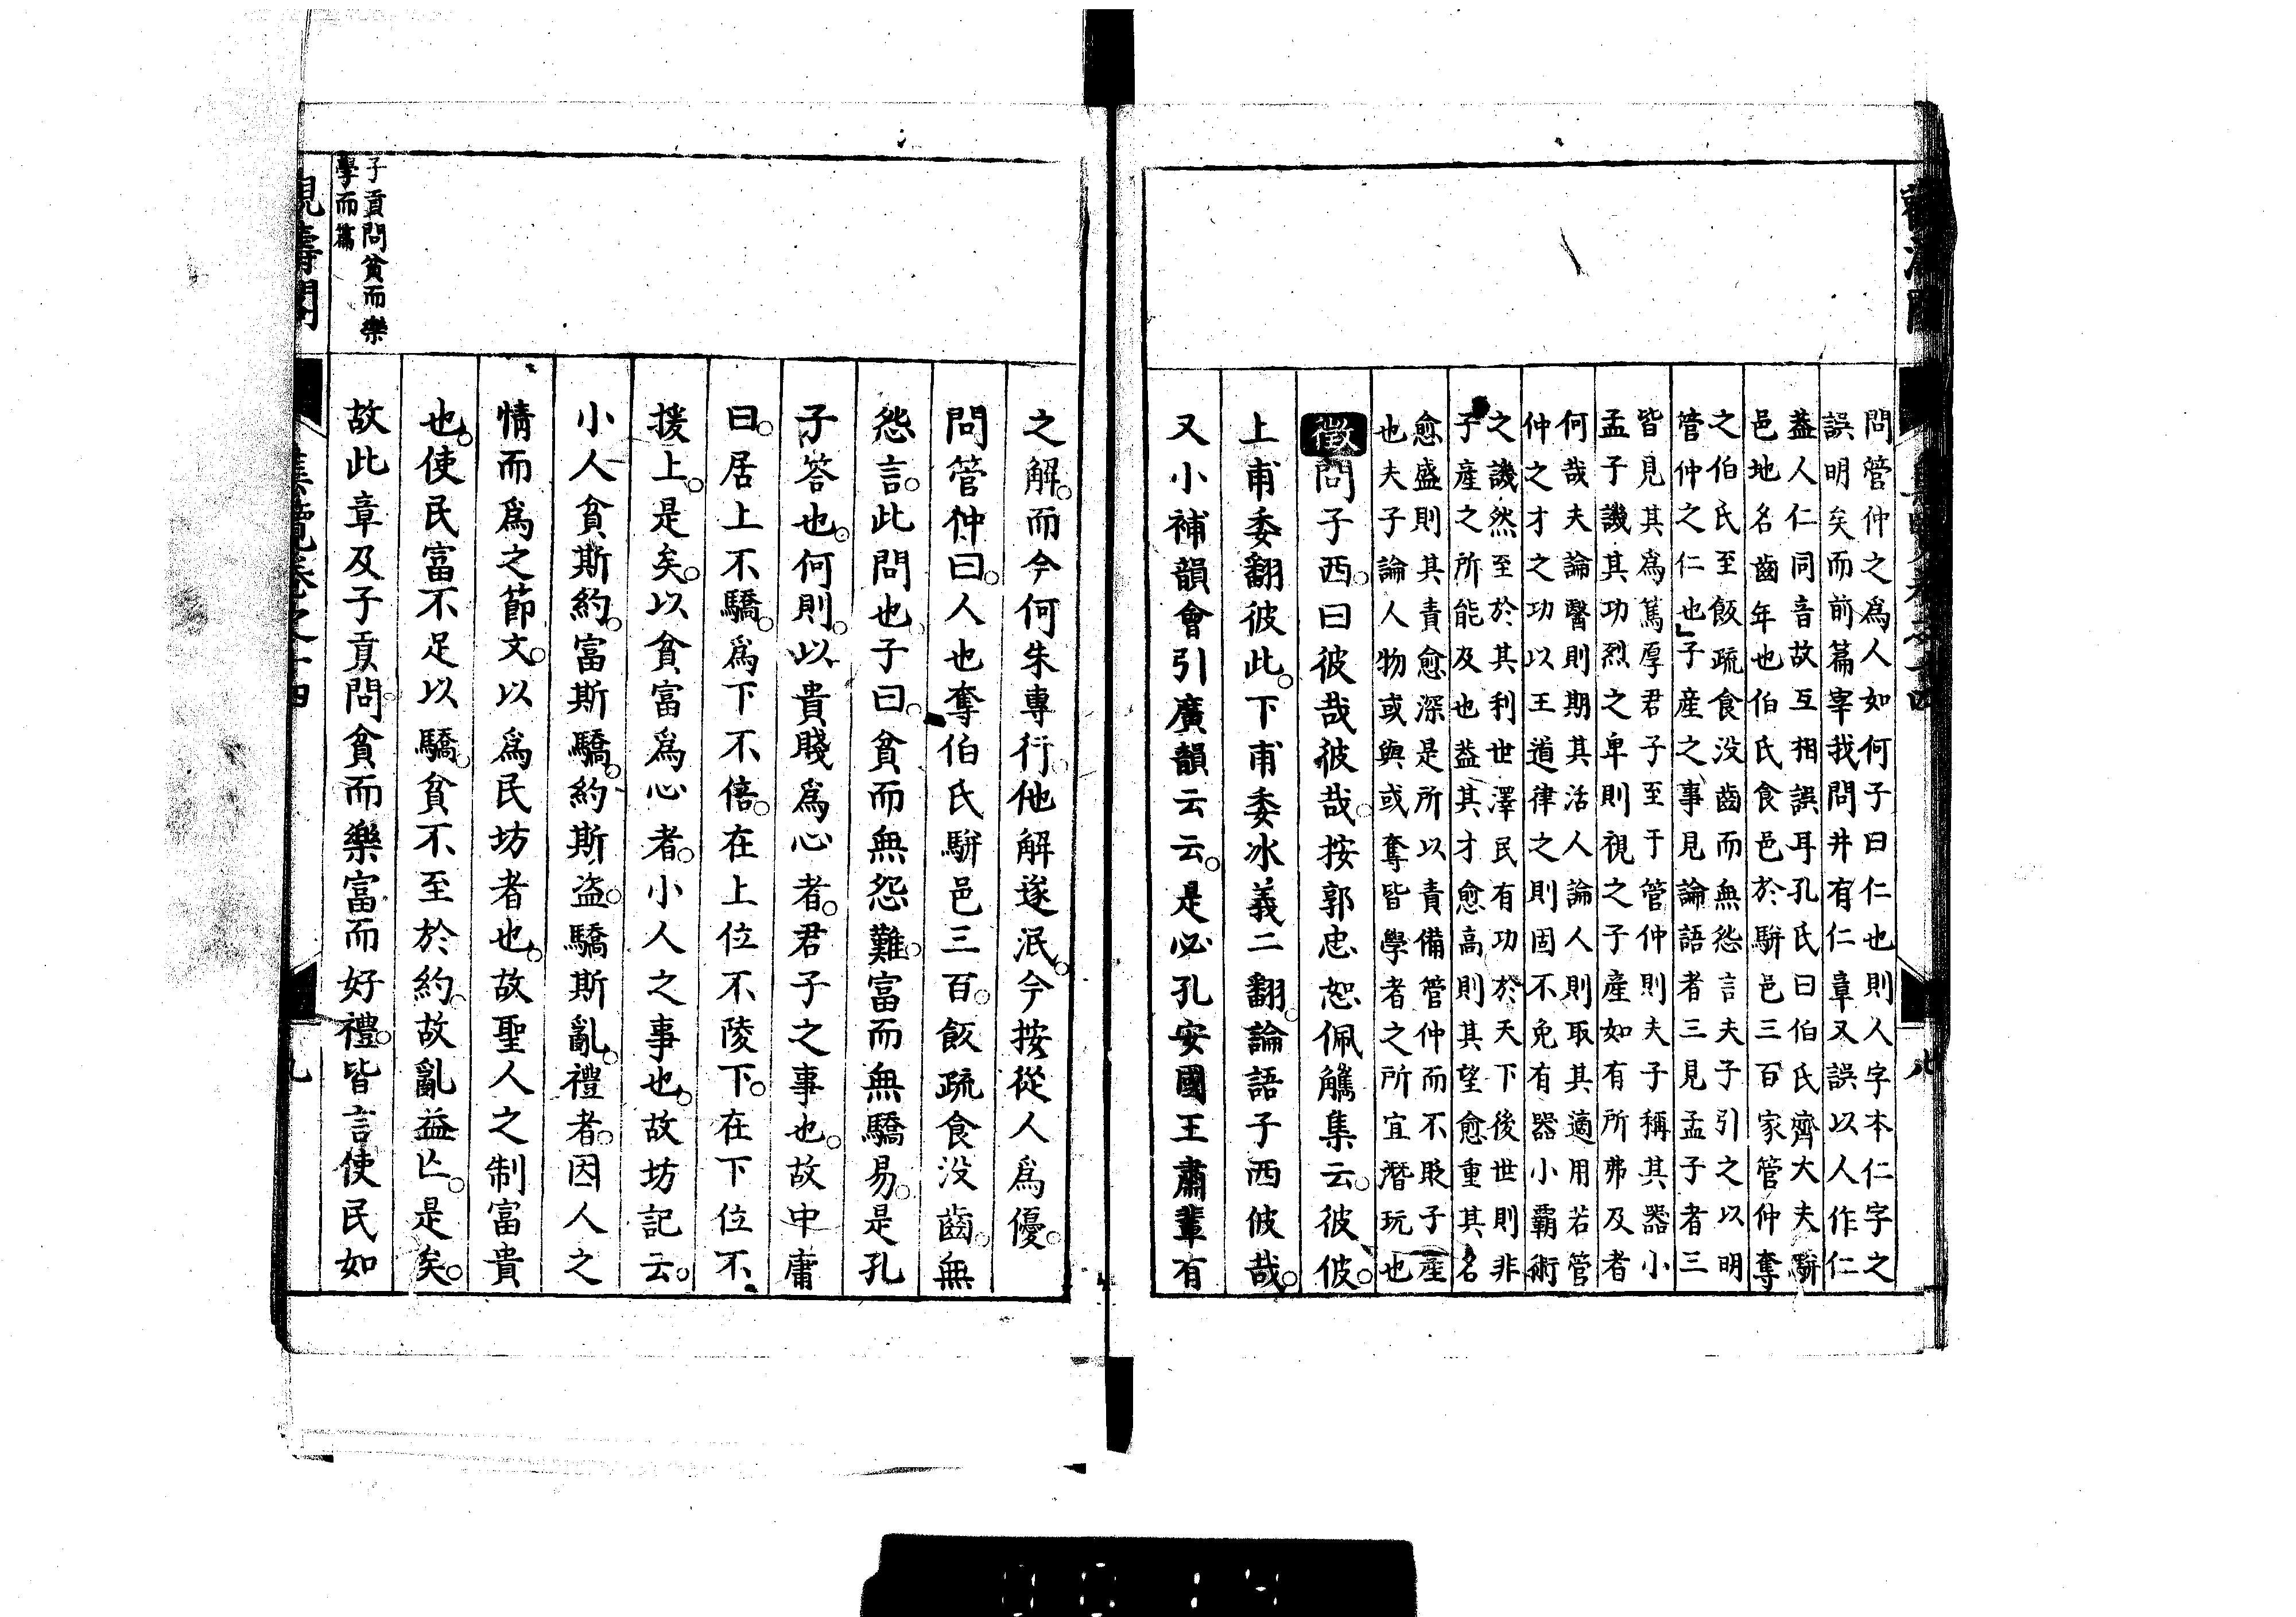 問管仲之爲人如何子曰仁也則人字本仁字之
誤明矣而前篇宰我問井有仁章又誤以人作仁
葢人仁同音故互相誤耳孔氏曰伯氏齊大夫駢
邑地名齒年也伯氏食邑於駢邑三百家管仲奪
之伯氏至飯疏食没齒而無怨言夫子引之以明
管仲之仁也子產之事見論語者三見孟子者三
皆見其爲篤厚君子至于管仲則夫子稱其器小
孟子譏其功烈之卑則視之子產如有所弗及者
何哉夫論醫則期其活人論人則取其適用若管
仲之才之功以王道律之則固不免有器小霸術
之譏然至於其利世澤民有功於天下後世則非
子產之所能及也葢其才愈高則其望愈重其名
愈盛則其責愈深是所以責備管仲而不貶子產
也夫子論人物或與或奪皆學者之所宜潛玩也
徵問子西曰彼哉彼哉按郭忠恕佩觿集云彼彼
上甫委翻彼此下甫委冰義二翻論語子西佊哉
又小補韻會引廣韻云云是必孔安國王肅輩有
之解而今何朱專行他解遂泯今按從人爲優
問管仲曰人也奪伯氏駢邑三百飯疏食没齒無
怨言此問也子曰貧而無怨難富而無驕易是孔
子答也何則以貴賤爲心者君子之事也故中庸
曰居上不驕爲下不倍在上位不陵下在下位不
援上是矣以貧富爲心者小人之事也故坊記云
小人貧斯約富斯驕約斯盜驕斯亂禮者因人之
情而爲之節文以爲民坊者也故聖人之制富貴
也使民富不足以驕貧不至於約故亂益亡是矣
子貢問貧而樂
學而篇
故此章及子貢問貧而樂富而好禮皆言使民如
九